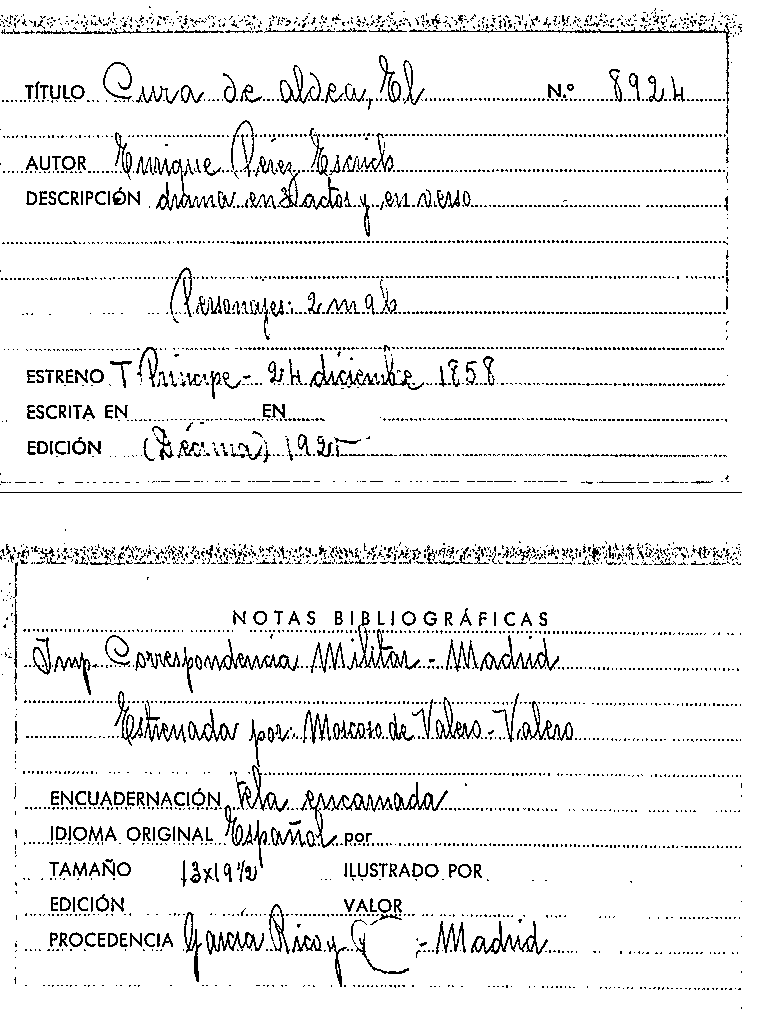 TÍTULO Cura de aldea, El N.º 8924
AUTOR Enrique Pérez Escrich
DESCRIPCIÓN drama en 3 actos y en verso
Personajes: 2 m 9 h
ESTRENO T Príncipe - 24 diciembre 1858
ESCRITA EN EN
EDICIÓN (Décima) 1925
NOTAS BIBLIOGRÁFICAS
Imp. Correspondencia Militar - Madrid
Estrenada por: Moscoso de Valero - Valero
ENCUADERNACIÓN Tela encarnada
IDIOMA ORIGINAL Español por
TAMAÑO 13x19½ ILUSTRADO POR
EDICIÓN VALOR
PROCEDENCIA García Rico y - Madrid